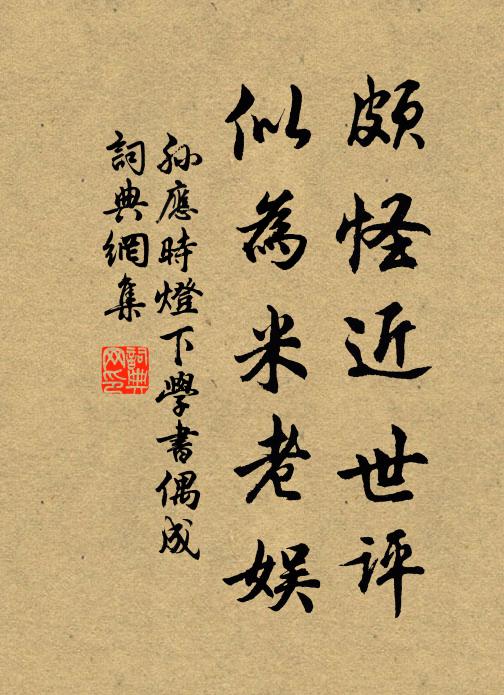 頗怪近世評
似為米老娱
孫應時燈下學書偶成
詞典網集
詞典
网印